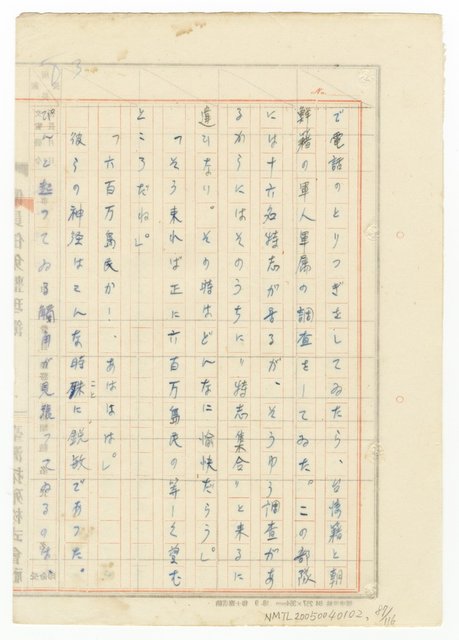 で電話のとりつぎをしてゐたら、台湾籍と朝
鮮籍の軍人軍属の調査をしてゐた。この部隊
には十六名特志が居るが、そうゆう調査があ
るからにはそのうちに〃特志集合〃と来るに
違ひなり。その時はどんなに愉快だらうし
「そう来れば正に六百万島民の等しく望む
ところだね」。
「六百万島民か！、あははは」。
彼らの神経はこんな時殊に鋭敏であつた。
こと
ぴんと起つてゐる触角が見張つてゐるのは、
No.
3
NMTL20050040102,
89/116